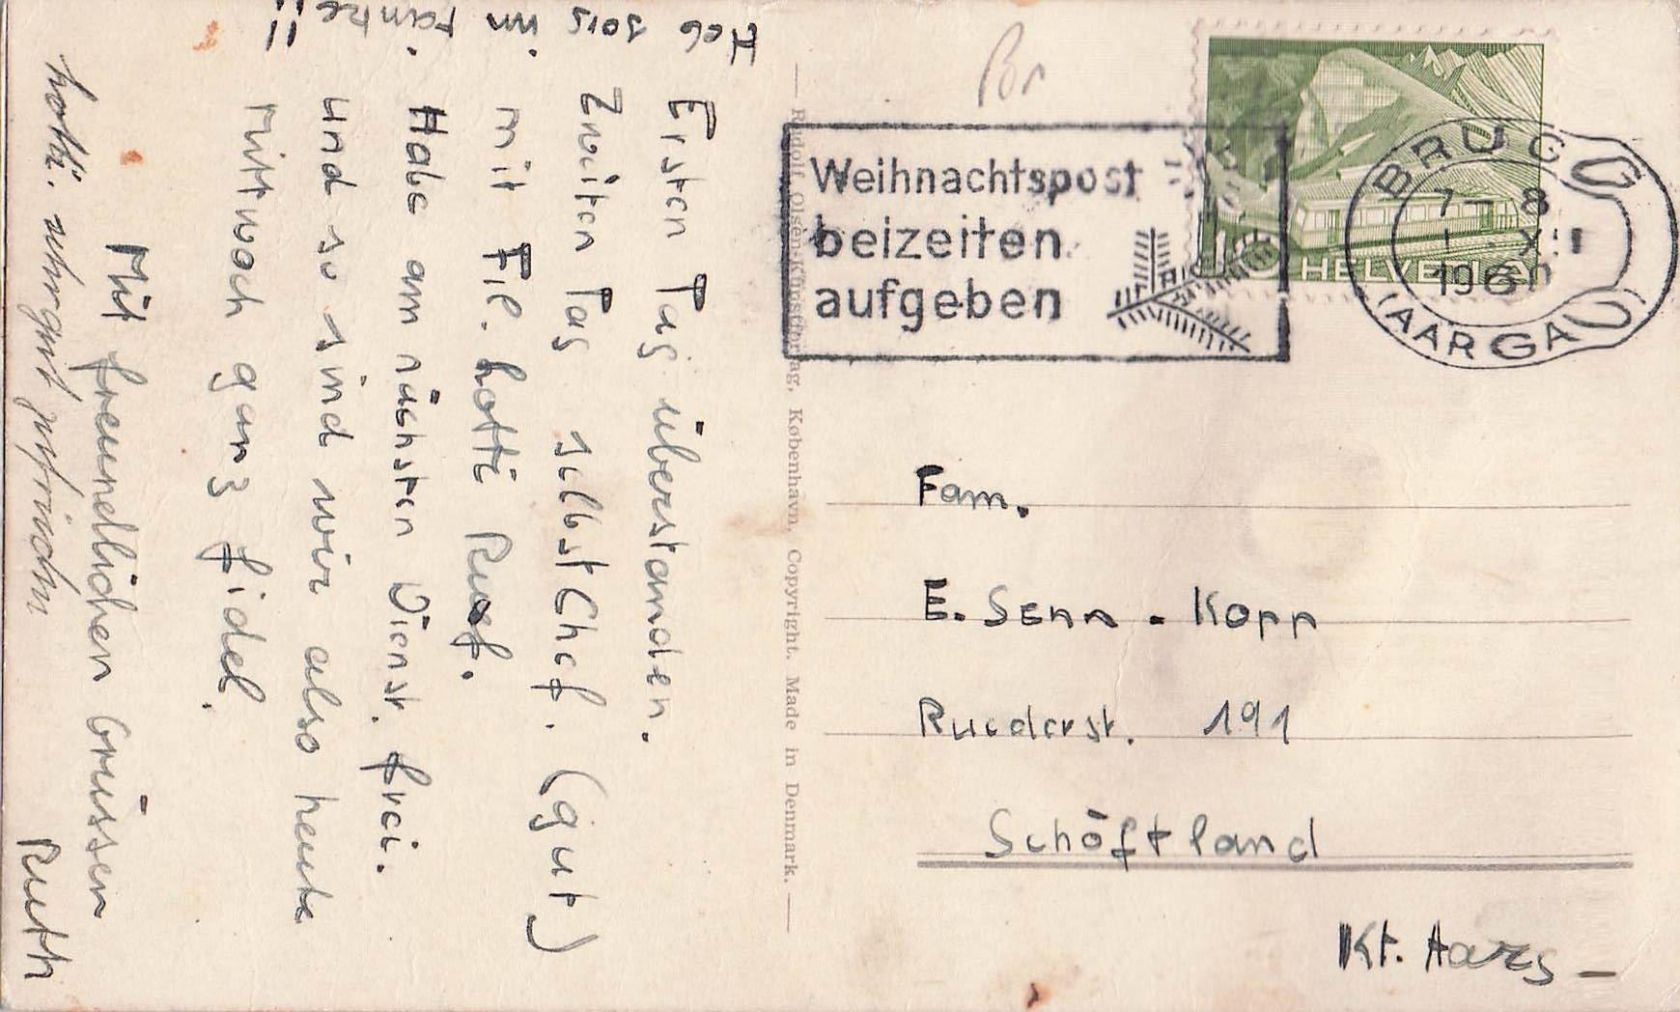 Ersten Tag überstanden.
Zweiten Tag selbst Chef. (gut)
mit Frl. Lotti Ruef.
Habe am nächsten Dienst. frei.
und so sind wir also heute
Mittwoch ganz fidel.
Mit freundlichen Grüssen
Ruth
!!
Rudolf Olsens Kunstforlag, København. Copyright. Made in Denmark.
Weihnachtspost
beizeiten
aufgeben
BRUGG
7-8
1.XII
1960
(AARGAU)
HELVETIA
10
Fam.
E. Senn - Kopp
Ruederst. 191
Schöftland
Kt. Aarg